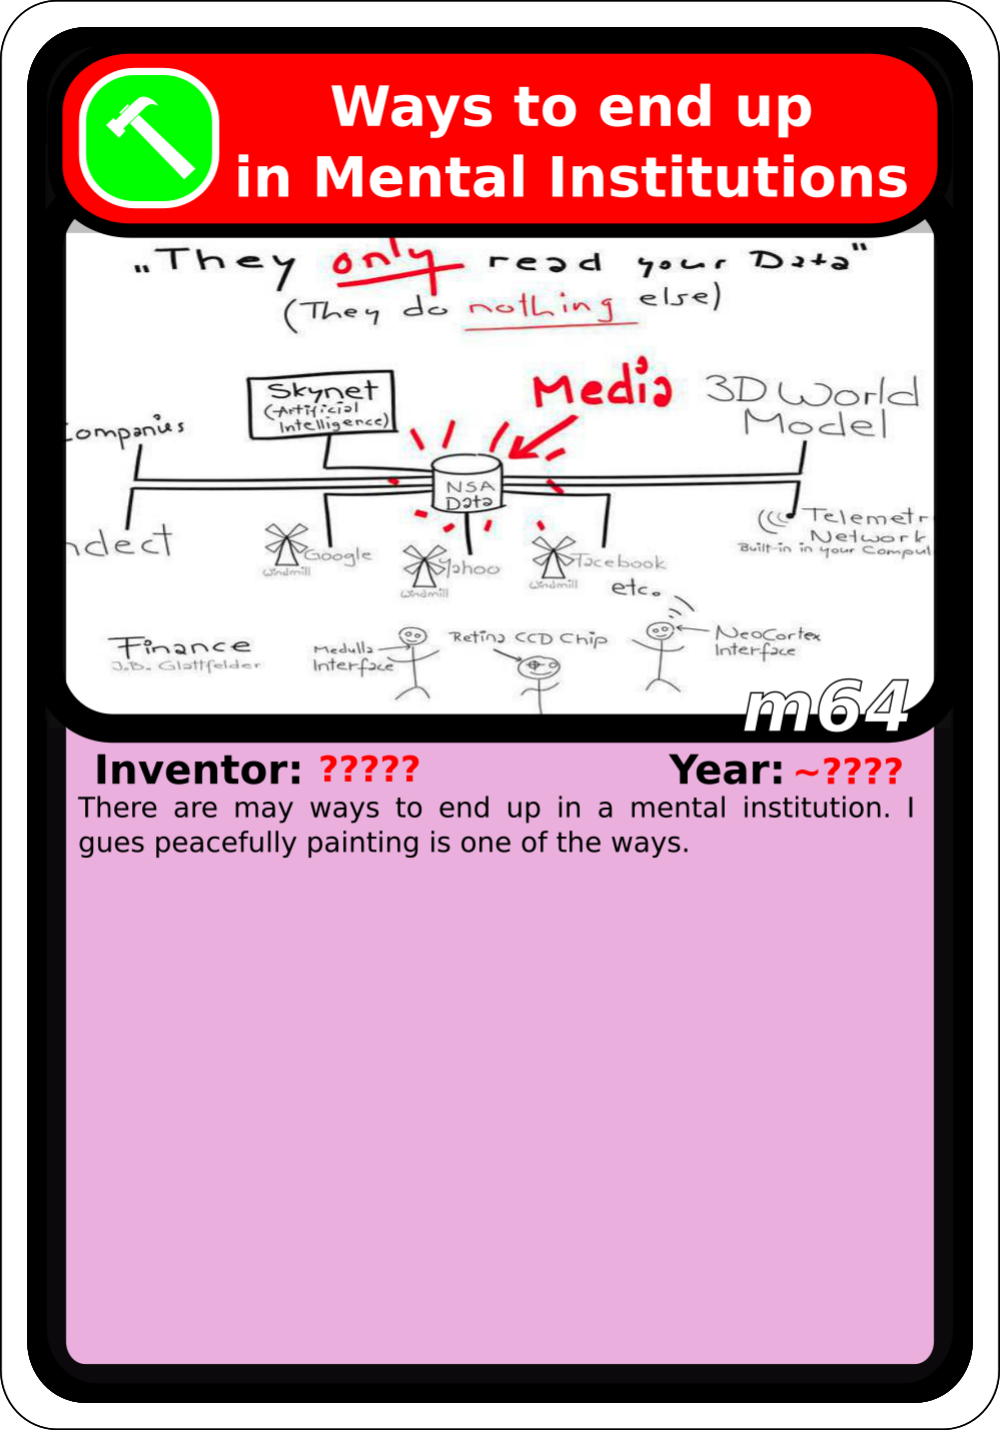 Ways to end up
in Mental Institutions
„They only read your Data"
(They do nothing else)
Skynet
(Artificial
Intelligence)
Media
3D World
Model
ompanies
NSA
Data
ndect
Google
Windmill
Yahoo
Windmill
Facebook
Windmill
etc.
Telemetr
Network
Built-in in your Comput
Finance
J.B. Glattfelder
Medulla
Interface
Retina CCD Chip
NeoCortex
Interface
m64
Inventor: ????? Year: ~????
There are may ways to end up in a mental institution. I
gues peacefully painting is one of the ways.